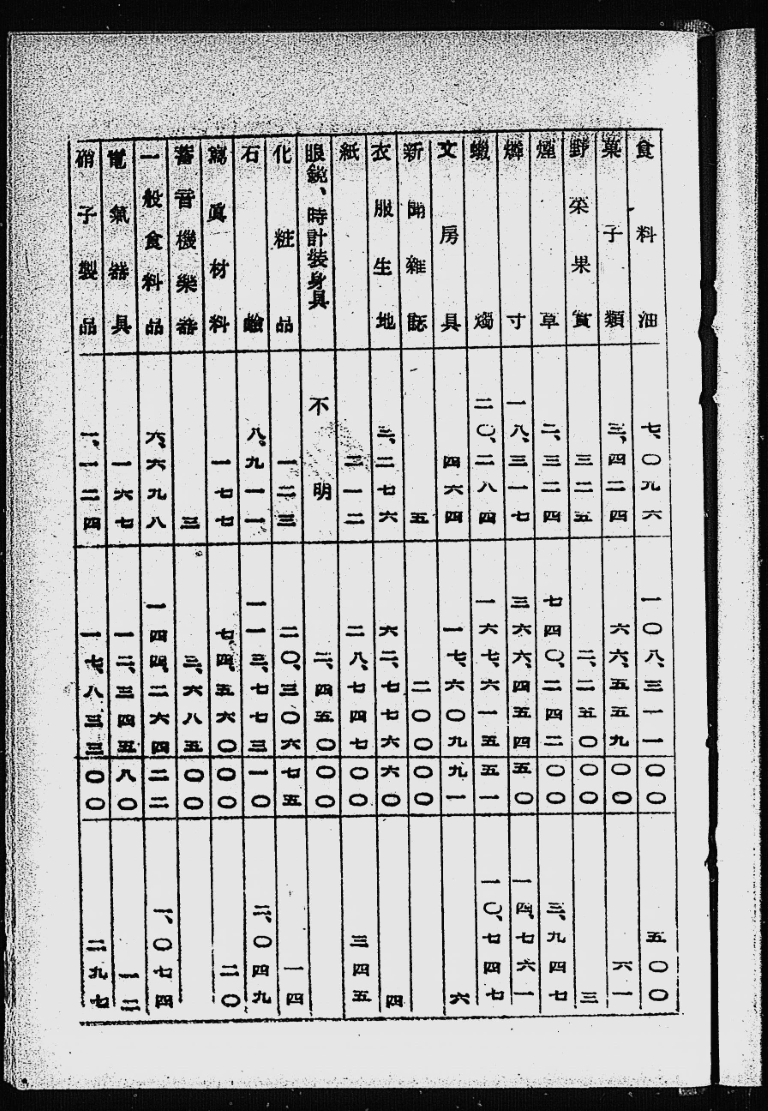 食料油 七、〇九六 一〇八、三一一 〇〇 五〇〇
菓子類 三、四二四 六六、五五九 〇〇 六一
野菜果實 三二五 二、二五〇 〇〇 三
煙草 二、三二四 七四〇、二四二 〇〇 三、九四七
燐寸 一八、三一七 三六六、四五四 五〇 一四、七六一
蠟燭 二〇、二八四 一六七、六一五 五一 一〇、七四七
文房具 四六四 一七、六〇九 九一 六
新聞雜誌 五 二〇〇 〇〇
衣服生地 三、二七六 六二、七七六 六〇 四
紙 二一二 二八、七四七 〇〇 三四五
眼鏡、時計裝身具 不明 二、四五〇 〇〇
化粧品 一二三 二〇、三〇六 七五 一四
石鹼 八、九一一 一一三、七七三 一〇 二、〇四九
寫眞材料 一七七 七四、五六〇 〇〇 二〇
蓄音機樂器 三 三、六八五 〇〇
一般食料品 六、六九八 一四四、二六四 二二 二、〇七四
電氣器具 一六七 一二、三四五 八〇 一二
硝子製品 一、一二四 一七、八三三 〇〇 二九七